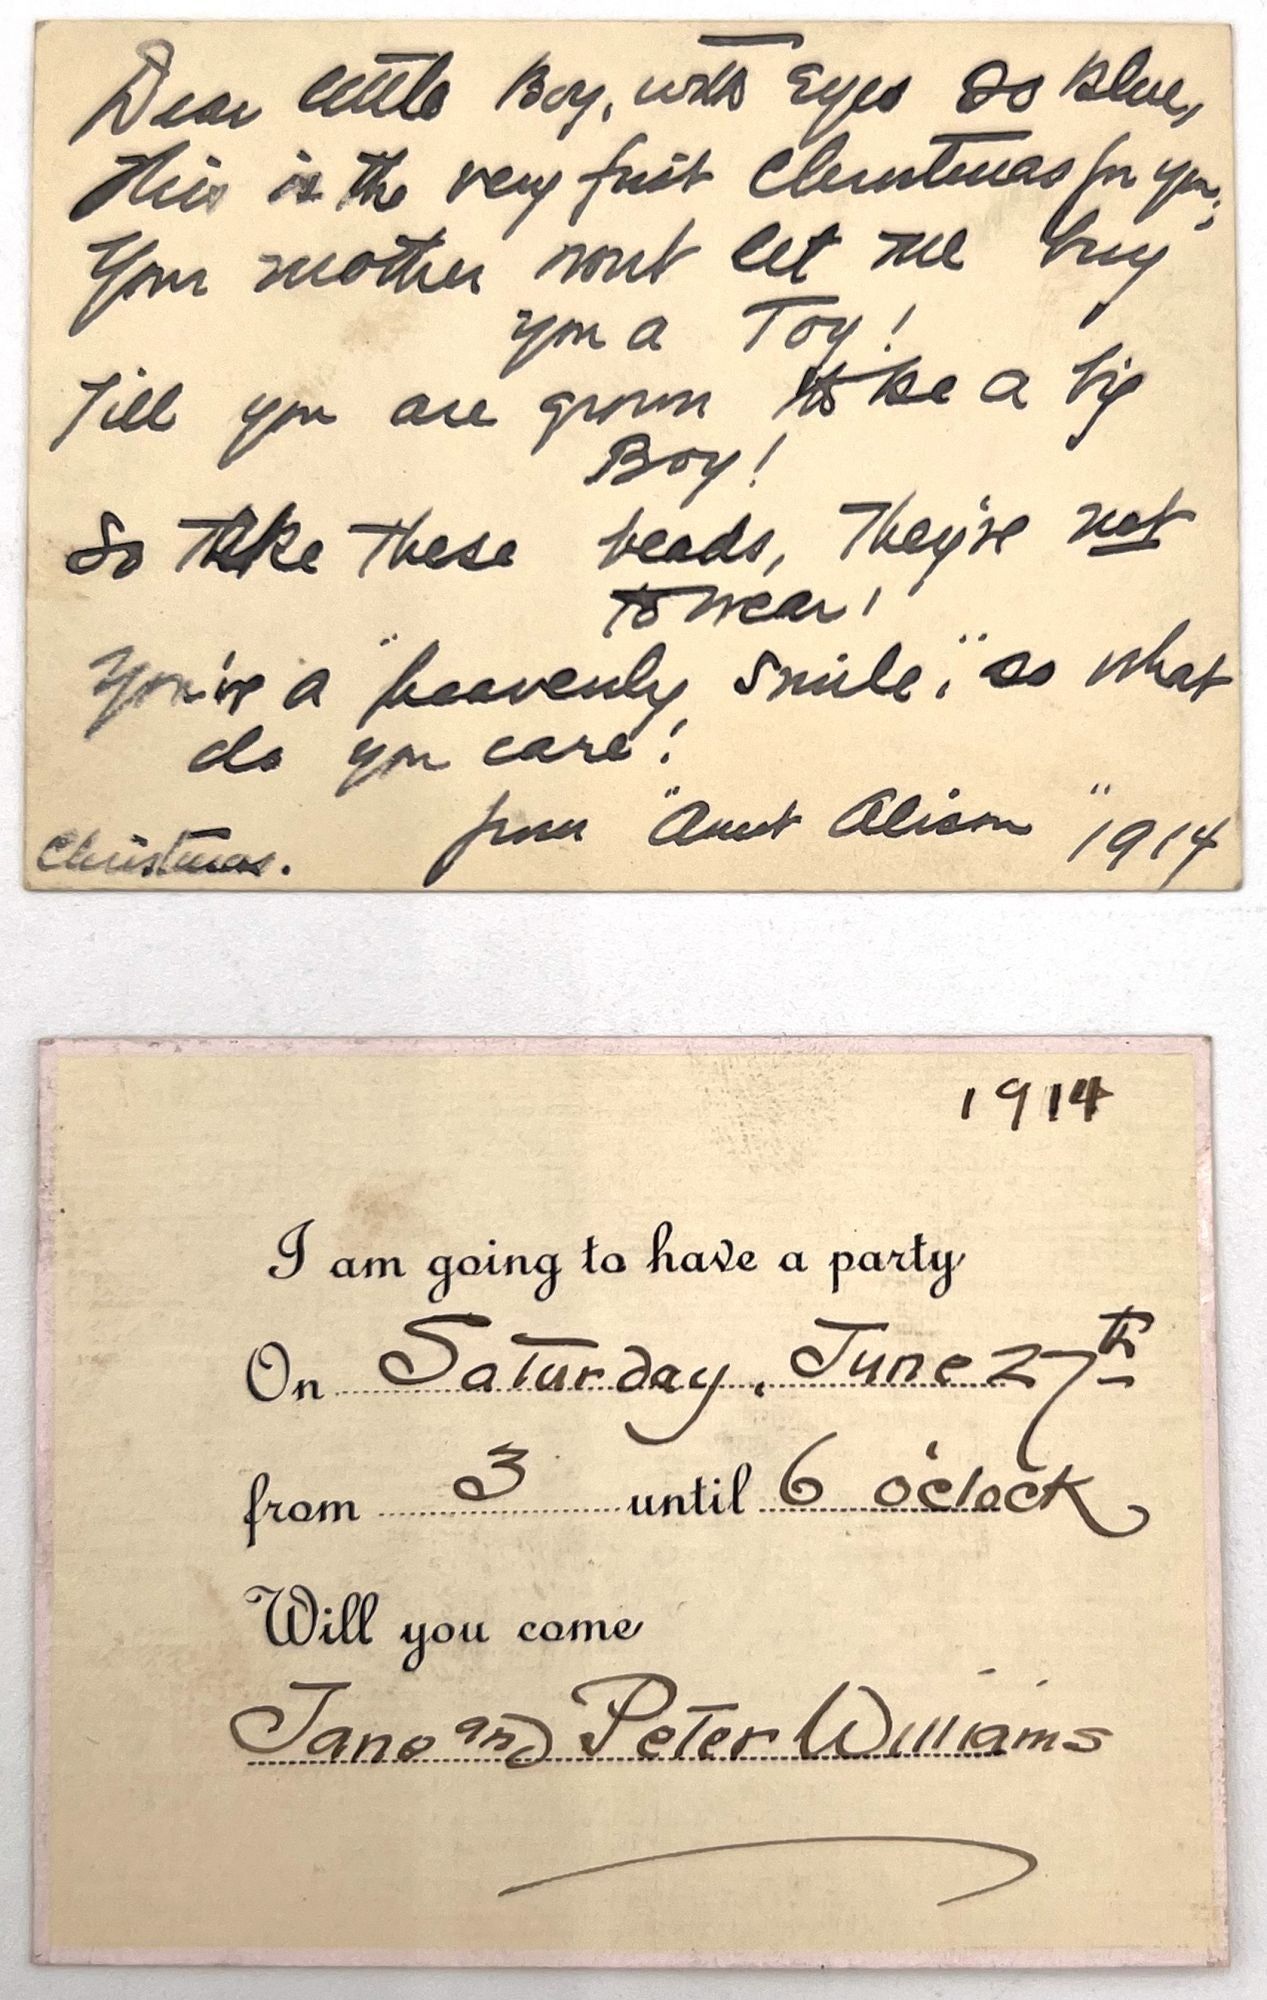 Dear little Boy, with Eyes so Blue,
This is the very first Christmas for you,
Your mother won't let me buy
you a Toy!
Till you are grown to be a big
Boy!
So take these beads, They're not
to wear!
You've a "heavenly smile," so what
do you care!
from "Aunt Alison"
Christmas. 1914
1914
I am going to have a party
On Saturday, June 27th
from 3 until 6 o'clock
Will you come
Jane and Peter Williams